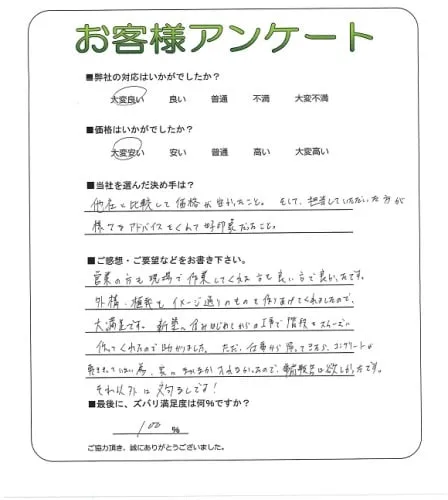 お客様アンケート
■弊社の対応はいかがでしたか?
大変良い 良い 普通 不満 大変不満
■価格はいかがでしたか?
大変安い 安い 普通 高い 大変高い
■当社を選んだ決め手は?
他社と比較して価格が安かったこと。そして、担当していただいた方が
様々なアドバイスをくれて好印象だったこと。
■ご感想・ご要望などをお書き下さい。
営業の方も現場で作業してくれる方も良い方で良かったです。
外構、植栽もイメージ通りのものを作りあげてくれましたので、
大満足です。新築に住みはじめてからの工事で階段をスムーズに
作ってくれたので助かりました。ただ、仕事から帰ってきたら、コンクリートが
為、家に
欲しかったです。
それ以外は文句なしです!
■最後に、ズバリ満足度は何%ですか?
100 %
ご協力頂き、誠にありがとうございました。